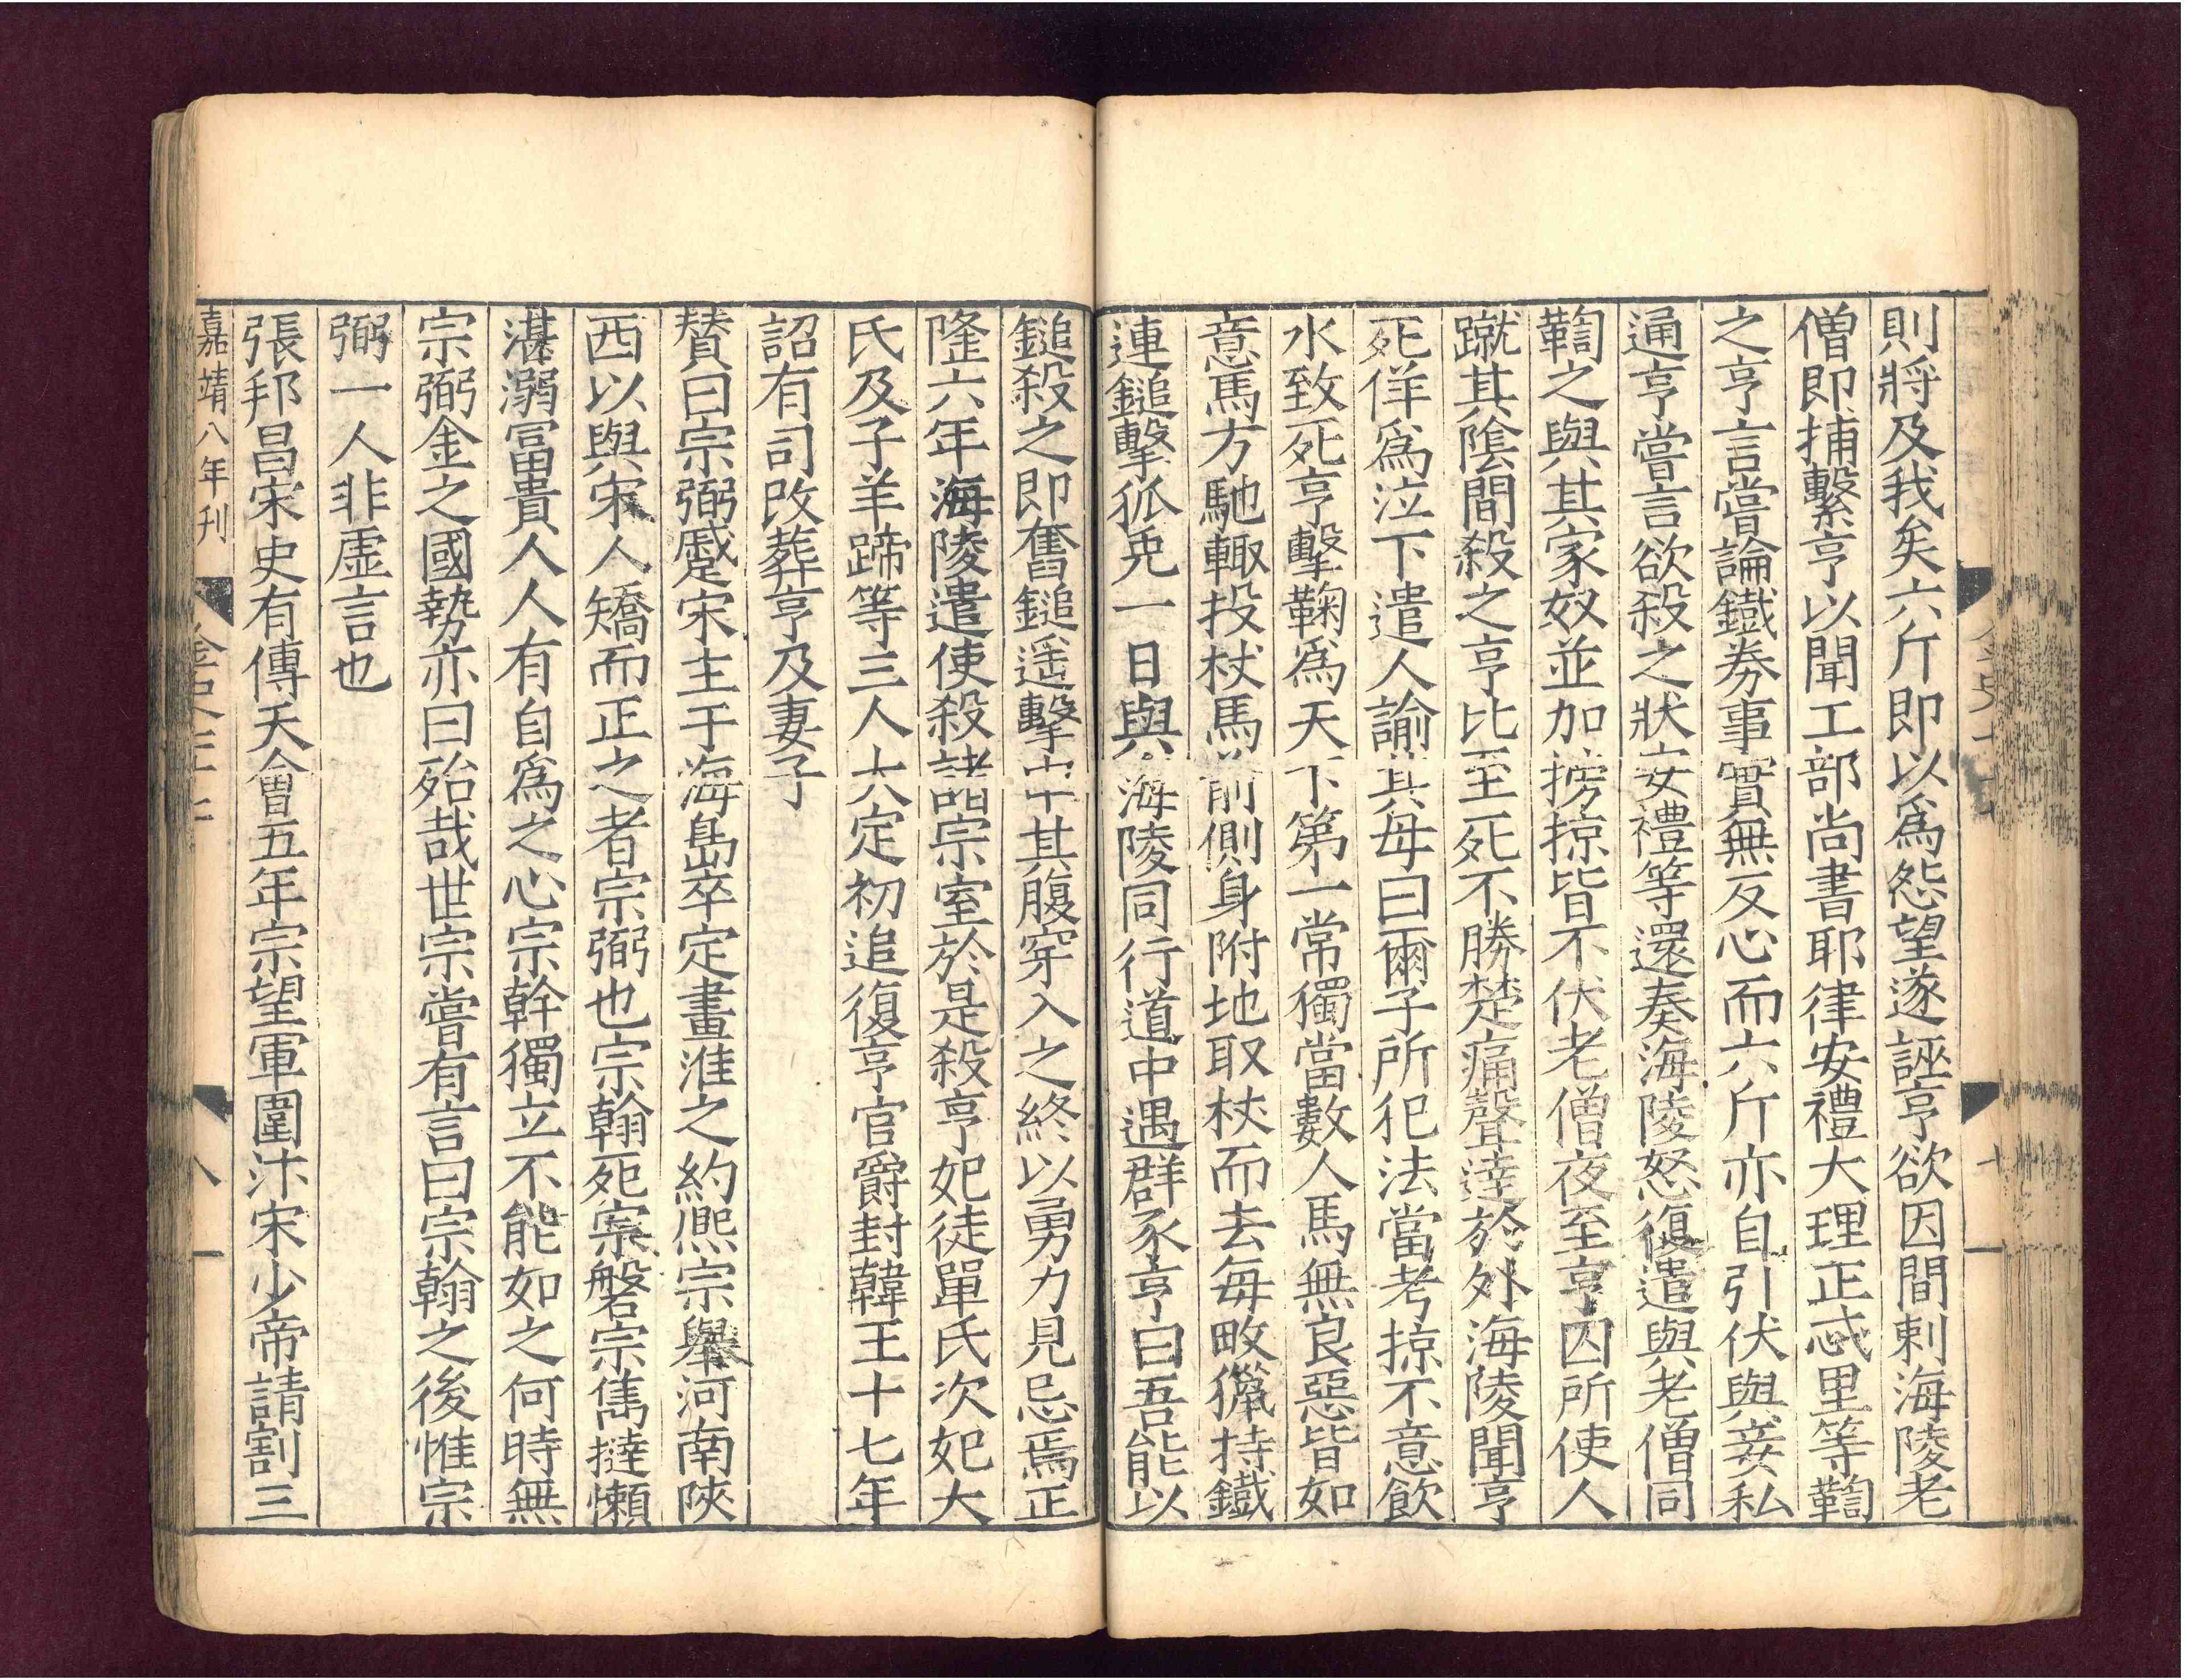 則將及我矣六斤即以爲怨望遂誣亨欲因間刺海陵老
僧即捕繫亨以聞工部尚書耶律安禮大理正忒里等鞫
之亨言嘗論鐵券事實無反心而六斤亦自引伏與妾私
通亨嘗言欲殺之狀安禮等還奏海陵怒復遣與老僧同
鞫之與其家奴並加搒掠皆不伏老僧夜至亨囚所使人
蹴其陰間殺之亨比至死不勝楚痛聲達於外海陵聞亨
死佯爲泣下遣人諭其母曰爾子所犯法當考掠不意飲
水致死亨擊鞠爲天下第一常獨當數人馬無良惡皆如
意馬方馳輙投杖馬前側身附地取杖而去每畋獵持鐵
連鎚擊狐兎一日與海陵同行道中遇群豕亨曰吾能以
鎚殺之即奮鎚遥擊中其腹穿入之終以勇力見忌焉正
隆六年海陵遣使殺諸宗室於是殺亨妃徒單氏次妃大
氏及子羊蹄等三人大定初追復亨官爵封韓王十七年
詔有司改葬亨及妻子
賛曰宗弼蹙宋主于海島卒定畫淮之約熈宗舉河南陜
西以與宋人矯而正之者宗弼也宗翰死宗磐宗雋撻懶
湛溺富貴人人有自爲之心宗幹獨立不能如之何時無
宗弼金之國勢亦曰殆哉世宗嘗有言曰宗翰之後惟宗
弼一人非虚言也
張邦昌宋史有傳天會五年宗望軍圍汴宋少帝請割三
嘉靖八年刊
八